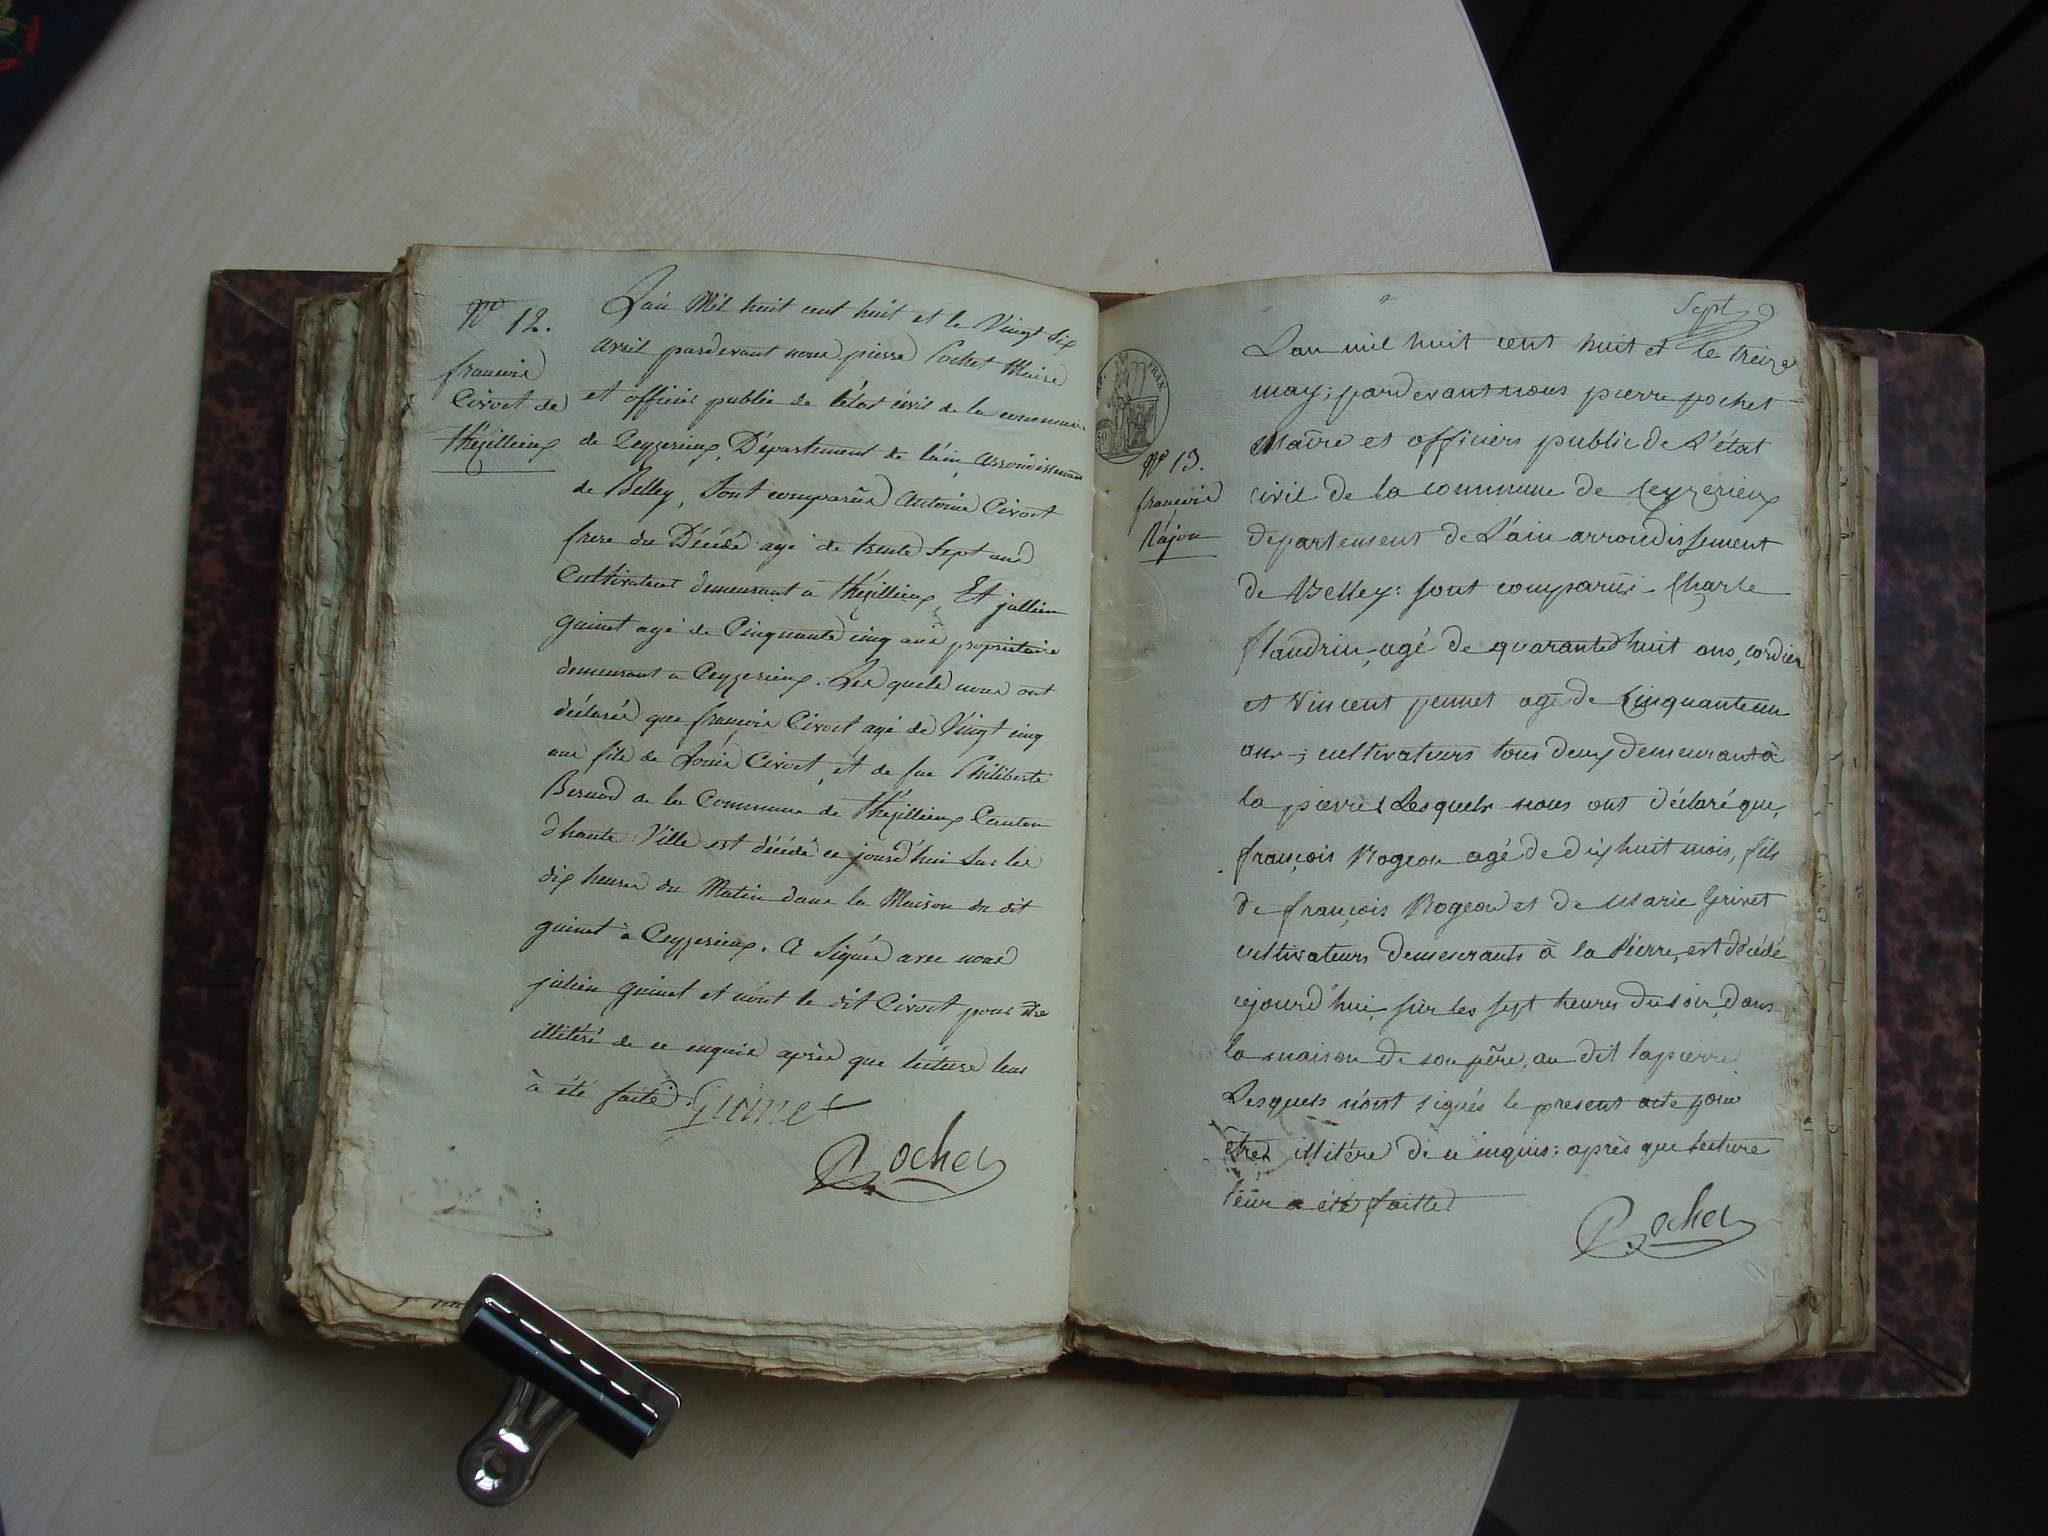 N° 12.
françois
Civoct de
thézillieux
L'an Mil huit cent huit et le Vingt Six
avril pardevant nous pierre Pochet Maire
et officier public de l'état civil de la commune
de Ceyzerieux, Département de l'ain arrondissement
de Belley, Sont comparus Antoine Civoct
frere du Décédé agé de trente Sept ans
Cultivateur demeurant à thézillieux, Et jullien
guinet agé de Cinquante cinq ans propriétaire
demeurant a Ceyzerieux. Les quels nous ont
déclarés que françois Civoct agé de Vingt cinq
ans fils de Louis Civoct, et de fue Philiberte
Bernod de la Commune de thézillieux Canton
d'haute Ville est décédé ce jourd'hui Sur les
dix heures du Matin dans la Maison du dit
guinet à Ceyzerieux. A Signée avec nous
julien guinet et nont le dit Civoct pour être
illitéré de ce enquis après que lecture leur
à été faite. Guinet
Pochet
Sept
N° 13.
françois
Rajon
L'an mil huit cent huit et le treize
may; pardevant nous pierre pochet
Maire et officiers public de L'état
civil de la commune de Ceyzerieux
departement de L'ain arrondissement
de Belley: sont comparus Charle
flandrin, agé de quarante huit ans, cordier
et Vincent pennet agé de Cinquante un
ans; cultivateurs tous deux demeurant à
la pierre Lesquels nous ont déclaré que,
françois Rogeon agé de dix huit mois, fils
de françois Rogeon et de Marie Grivet
cultivateurs demeurants à la Pierre, est décédé
cejourd'hui, sur les sept heures du soir, dans
la maison de son père, au dit lapierre.
Lesquels n'ont signés le present acte pour
être illitére de ce inquis: après que lecture
leur a été faitte
Pochet